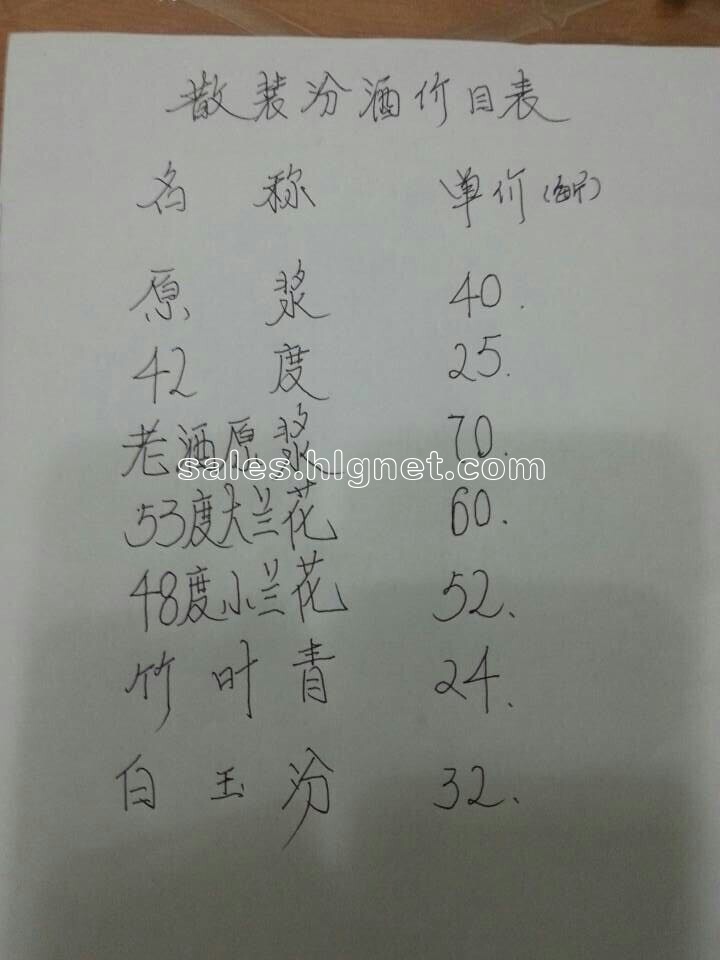 散装汾酒价目表
名称 单价(每斤)
原浆 40.
42度 25.
老酒原浆 70.
sales.hlgnet.com
53度大兰花 60.
48度小兰花 52.
竹叶青 24.
白玉汾 32.